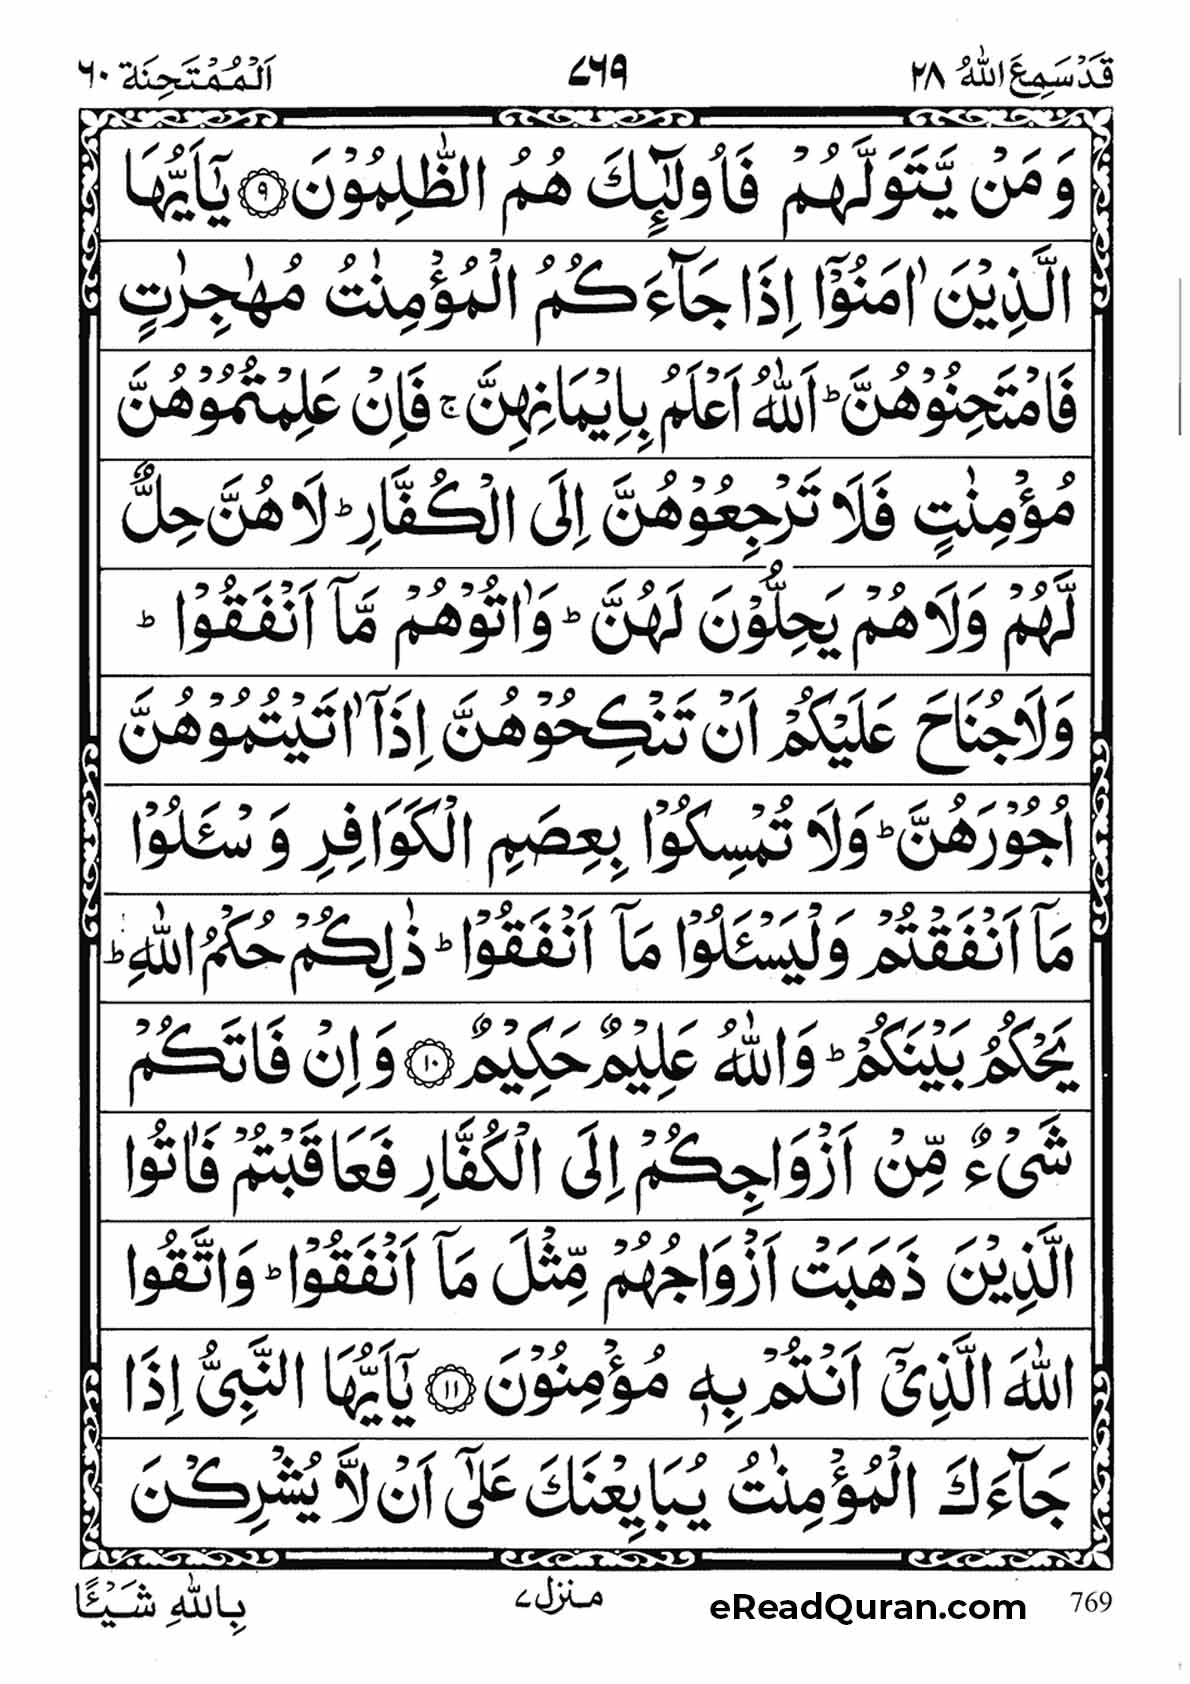 قَدْ سَمِعَ اللّٰهُ ٢٨
٧٦٩
اَلْمُمْتَحِنَة ٦٠
وَمَنْ يَّتَوَلَّهُمْ فَاُولٰٓئِكَ هُمُ الظّٰلِمُوْنَ ٩ يٰٓاَيُّهَا
الَّذِيْنَ اٰمَنُوْٓا اِذَا جَآءَكُمُ الْمُؤْمِنٰتُ مُهٰجِرٰتٍ
فَامْتَحِنُوْهُنَّ ؕ اَللّٰهُ اَعْلَمُ بِاِيْمَانِهِنَّ ۚ فَاِنْ عَلِمْتُمُوْهُنَّ
مُؤْمِنٰتٍ فَلَا تَرْجِعُوْهُنَّ اِلَى الْكُفَّارِ ؕ لَا هُنَّ حِلٌّ
لَّهُمْ وَلَا هُمْ يَحِلُّوْنَ لَهُنَّ ؕ وَاٰتُوْهُمْ مَّآ اَنْفَقُوْا ؕ
وَلَا جُنَاحَ عَلَيْكُمْ اَنْ تَنْكِحُوْهُنَّ اِذَآ اٰتَيْتُمُوْهُنَّ
اُجُوْرَهُنَّ ؕ وَلَا تُمْسِكُوْا بِعِصَمِ الْكَوَافِرِ وَسْـَٔلُوْا
مَآ اَنْفَقْتُمْ وَلْيَسْـَٔلُوْا مَآ اَنْفَقُوْا ؕ ذٰلِكُمْ حُكْمُ اللّٰهِ ؕ
يَحْكُمُ بَيْنَكُمْ ؕ وَاللّٰهُ عَلِيْمٌ حَكِيْمٌ ١٠ وَاِنْ فَاتَكُمْ
شَيْءٌ مِّنْ اَزْوَاجِكُمْ اِلَى الْكُفَّارِ فَعَاقَبْتُمْ فَاٰتُوا
الَّذِيْنَ ذَهَبَتْ اَزْوَاجُهُمْ مِّثْلَ مَآ اَنْفَقُوْا ؕ وَاتَّقُوا
اللّٰهَ الَّذِيْٓ اَنْتُمْ بِهٖ مُؤْمِنُوْنَ ١١ يٰٓاَيُّهَا النَّبِيُّ اِذَا
جَآءَكَ الْمُؤْمِنٰتُ يُبَايِعْنَكَ عَلٰٓى اَنْ لَّا يُشْرِكْنَ
بِاللّٰهِ شَيْـًٔا
منزل ٧
eReadQuran.com
769